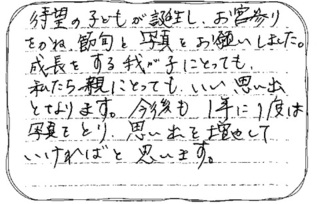 待望の子どもが誕生し、お宮参り
をかね、節句と写真をお願いしました。
成長をする我が子にとっても、
私たち親にとっても、いい思い出
となります。今後も1年に1度は
写真をとり、思い出を増やして
いければと思います。